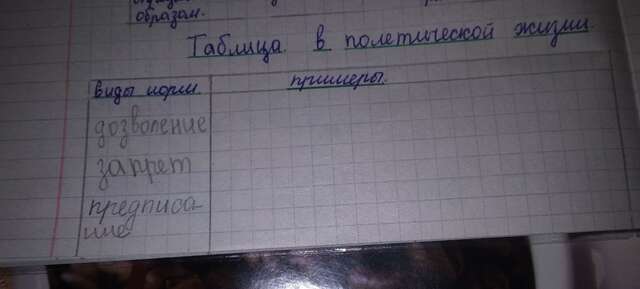 образом.
Таблица. в полетической жизни
виды норм.
примеры.
дозволение
запрет
предписа-
ние